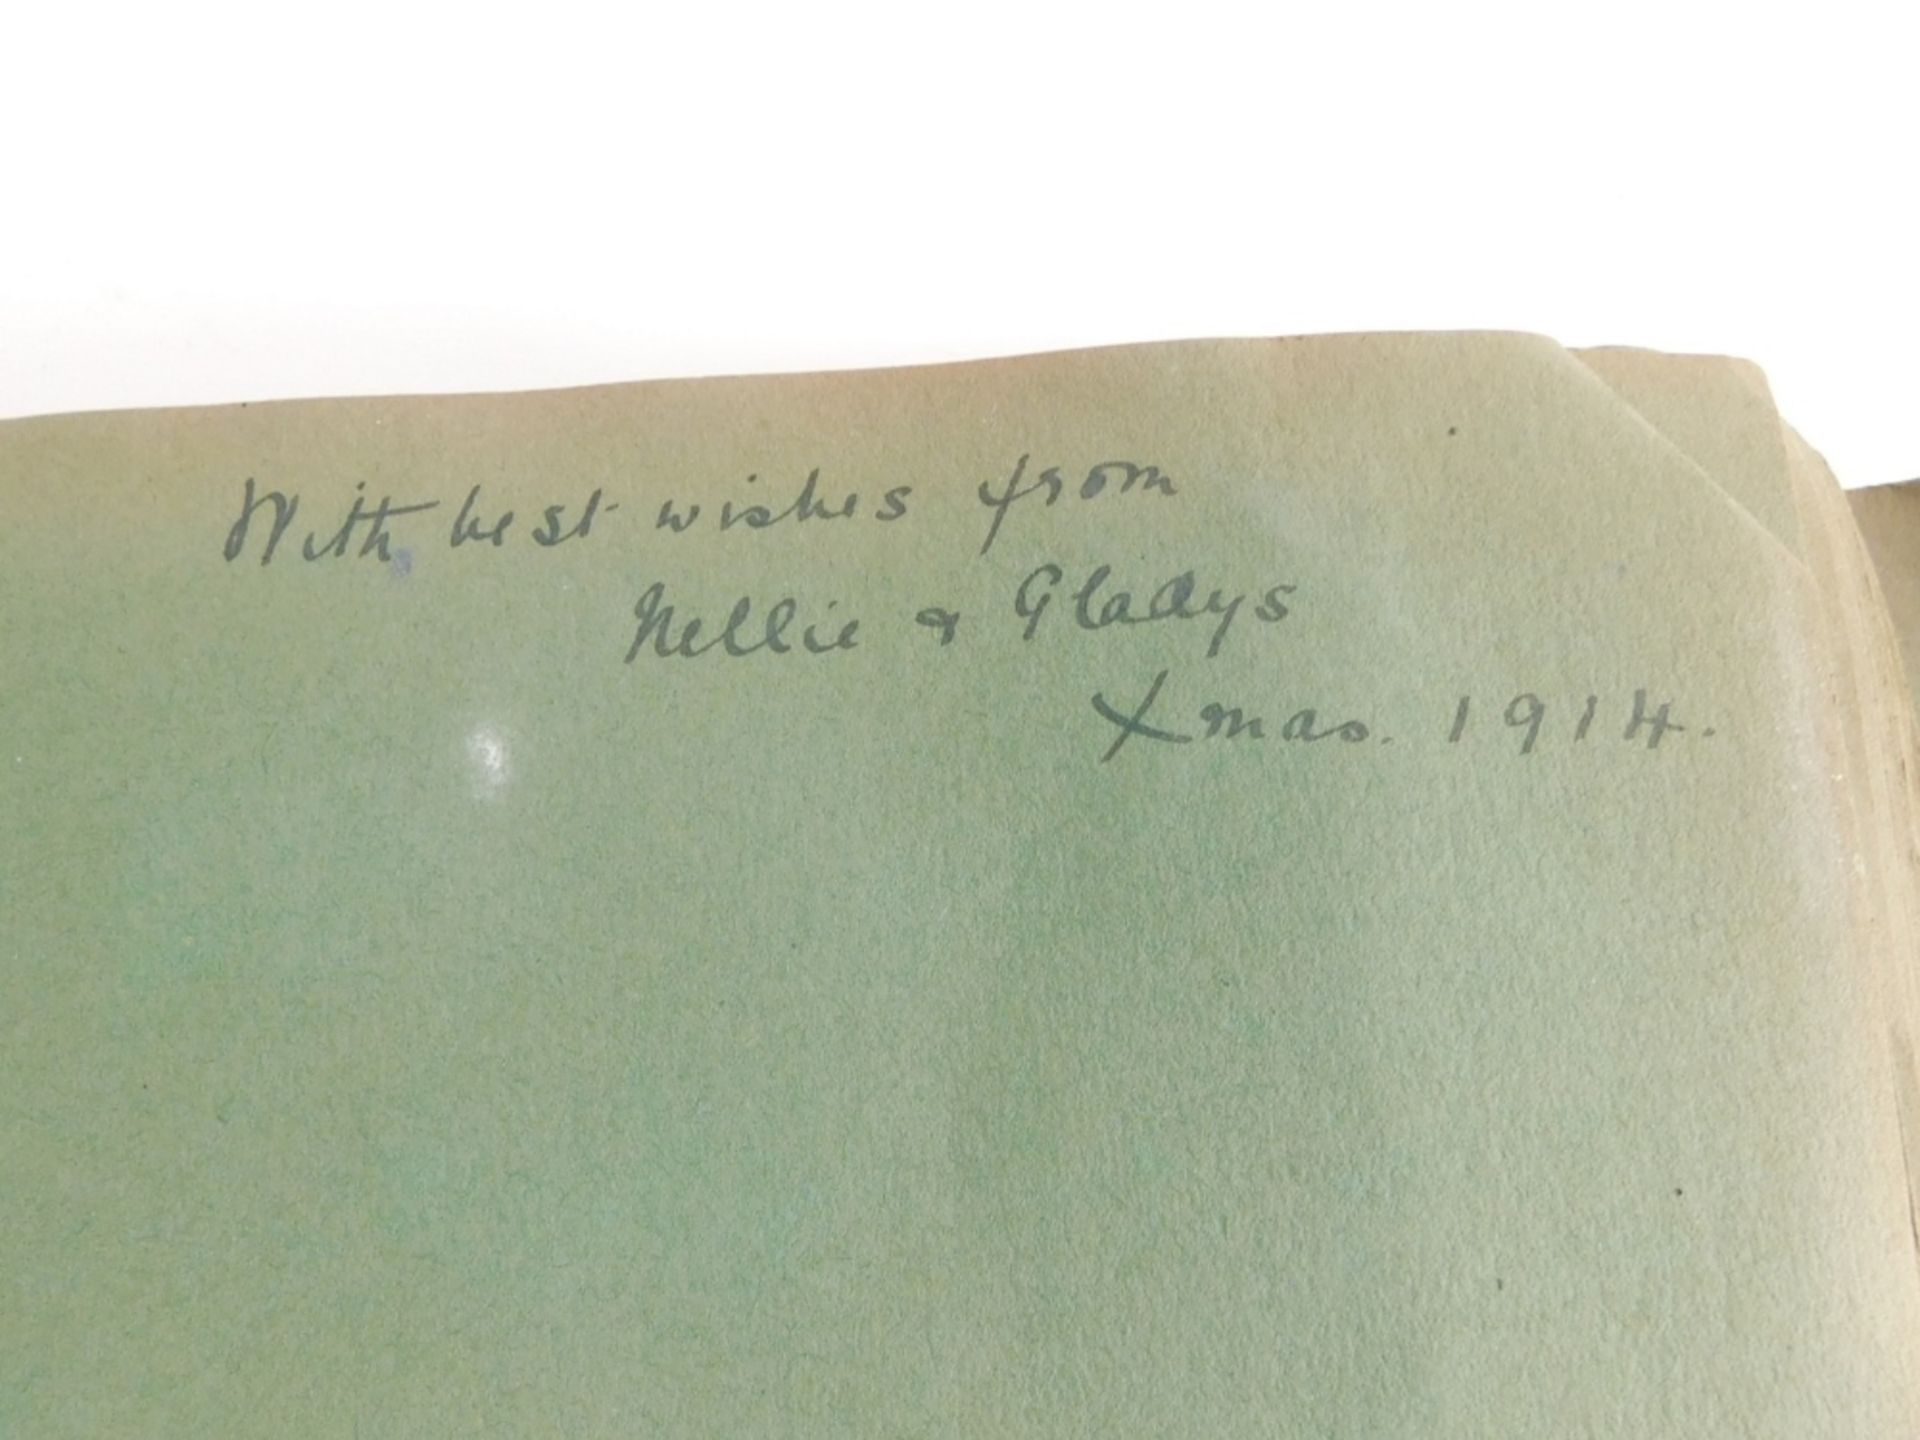 With best wishes from
Nellie & Gladys
Xmas. 1914.